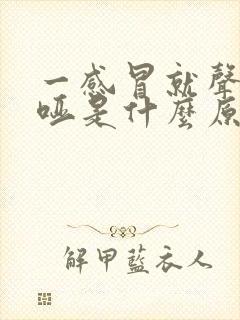 一感冒就聲
啞是什麼原
解甲藍衣人